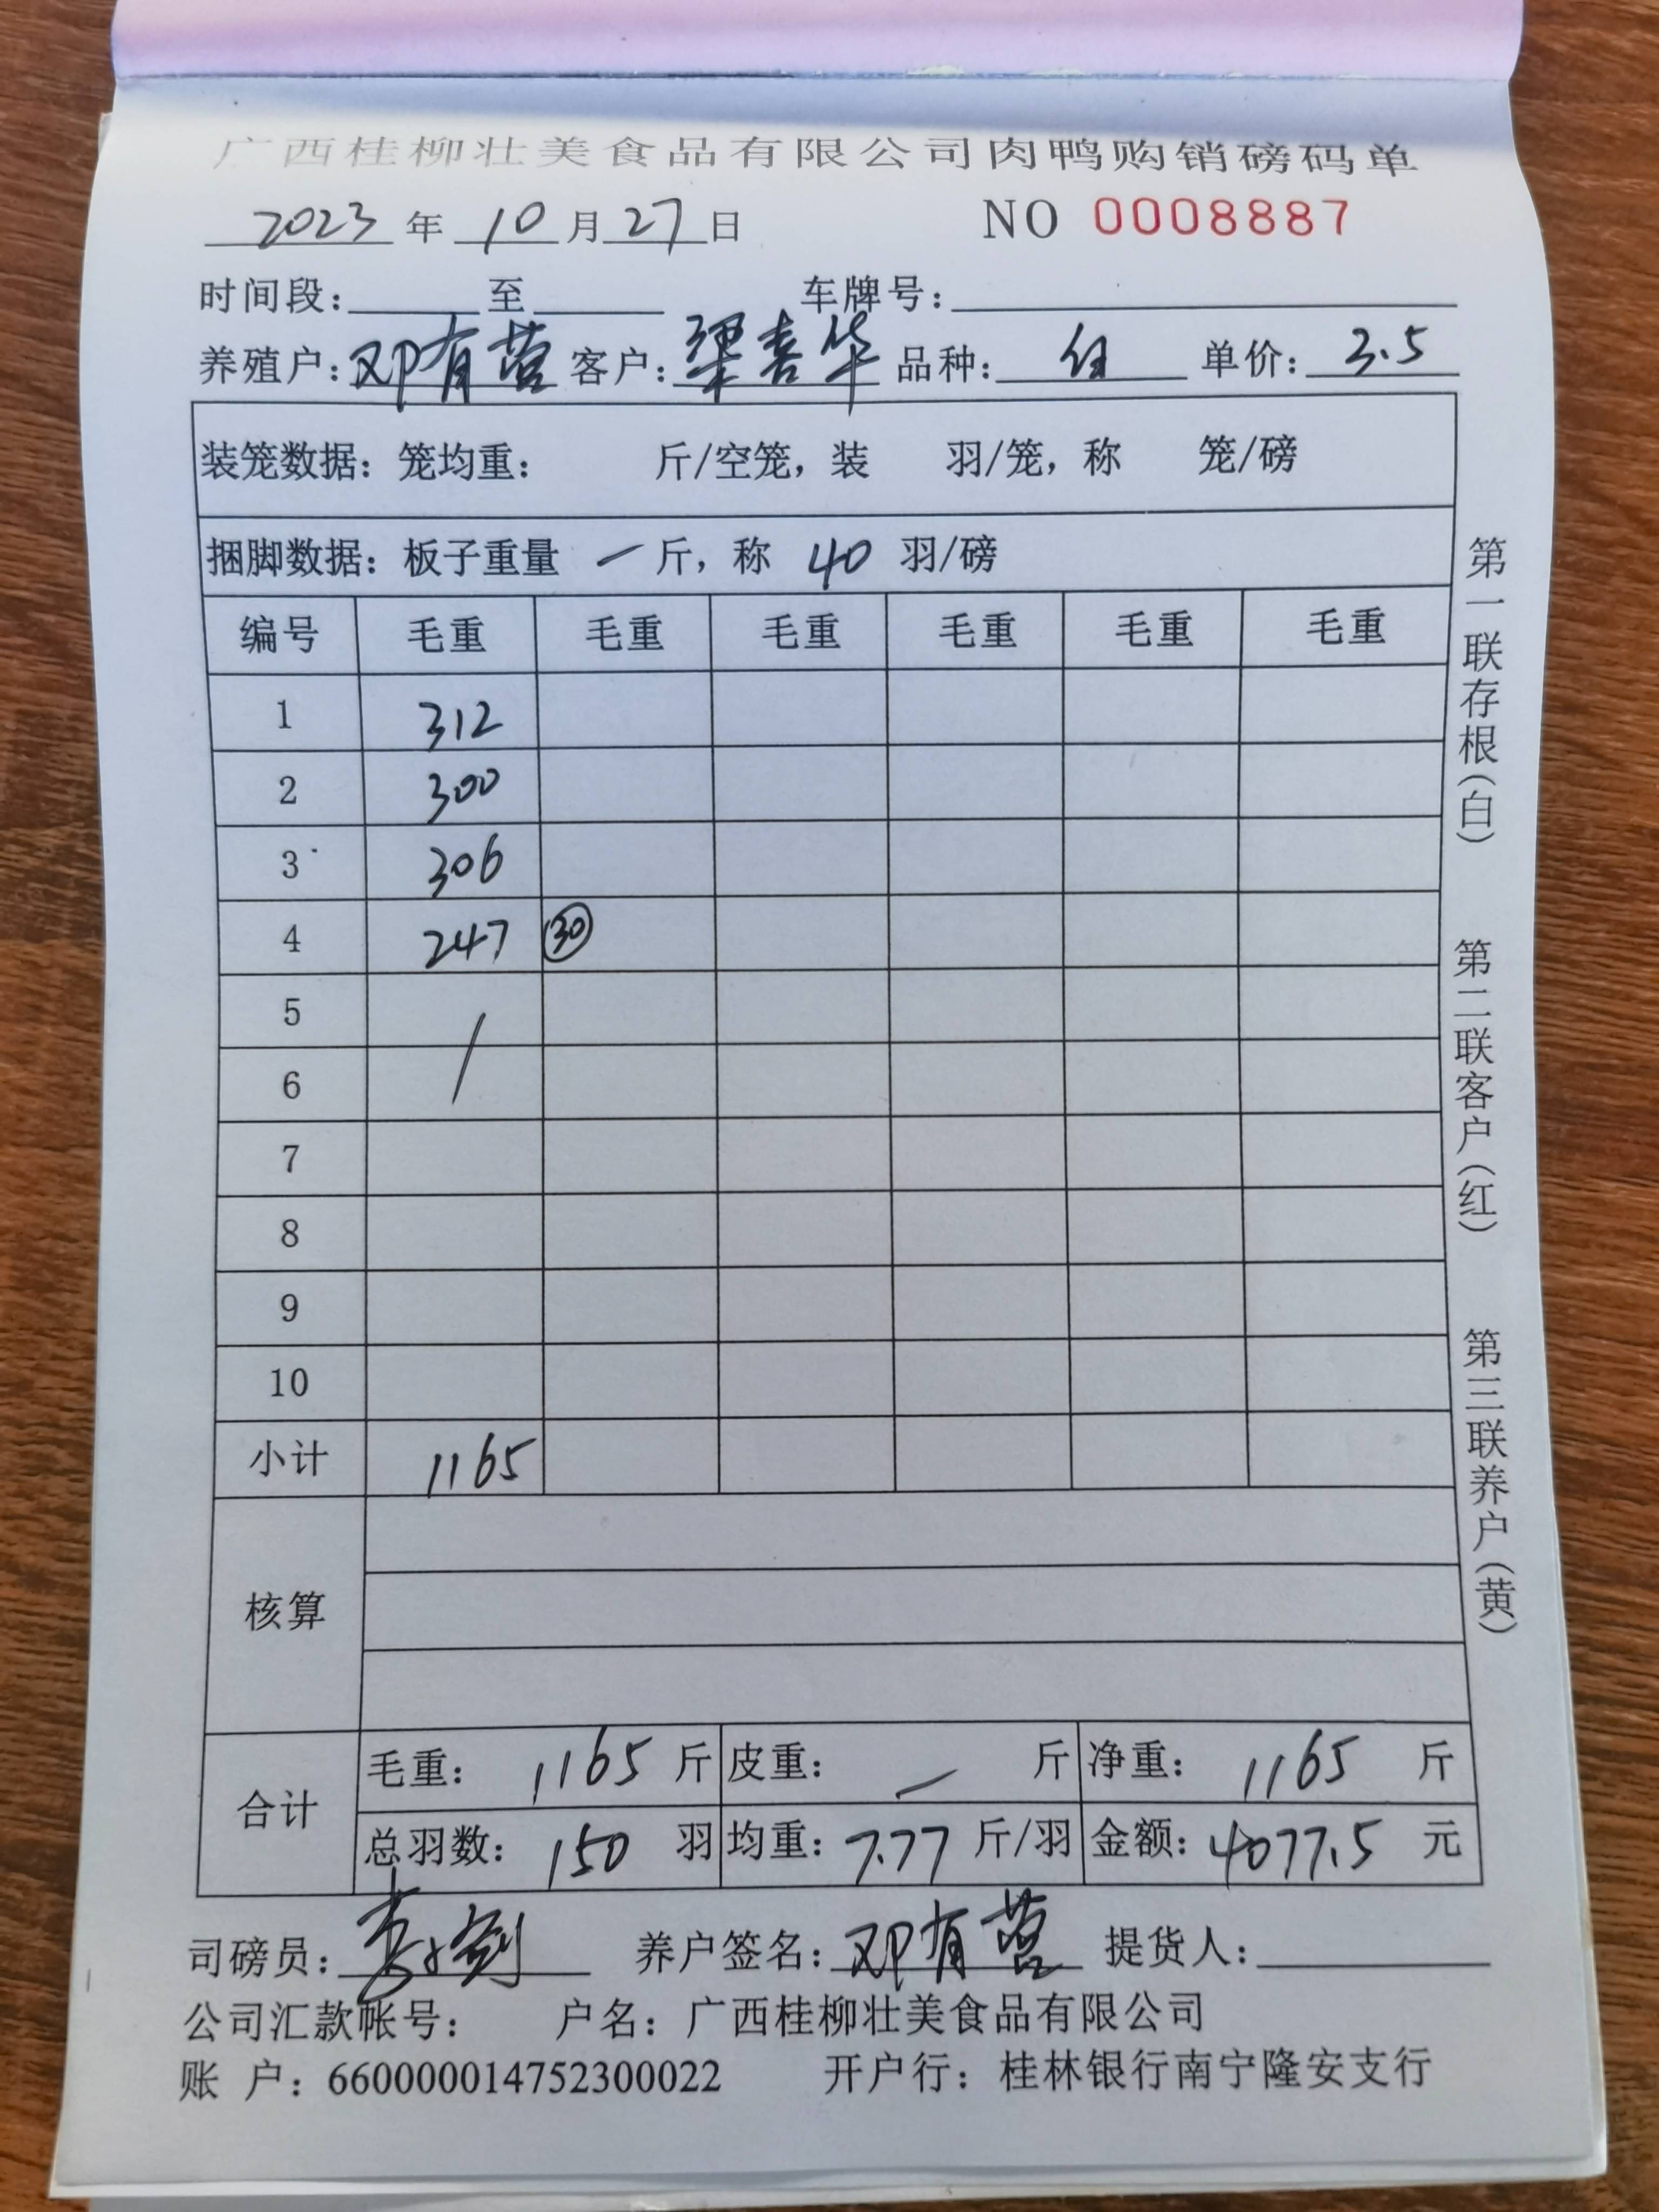 广西桂柳壮美食品有限公司肉鸭购销磅码单
2023 年 10 月 27 日 NO 0008887
时间段: 至 车牌号:
养殖户: 邓有营 客户: 梁喜华 品种: 单价: 3.5
装笼数据: 笼均重: 斤/空笼, 装 羽/笼, 称 笼/磅
捆脚数据: 板子重量 一 斤, 称 40 羽/磅
编号 毛重 毛重 毛重 毛重 毛重 毛重
1 312
2 300
3 306
4 247 30
5 /
6
7
8
9
10
小计 1165
核算
合计 毛重: 1165 斤 皮重: 一 斤 净重: 1165 斤
总羽数: 150 羽 均重: 7.77 斤/羽 金额: 4077.5 元
司磅员: 养户签名: 邓有营 提货人:
公司汇款帐号: 户名: 广西桂柳壮美食品有限公司
账 户: 660000014752300022 开户行: 桂林银行南宁隆安支行
第一联存根(白)
第二联客户(红)
第三联养户(黄)